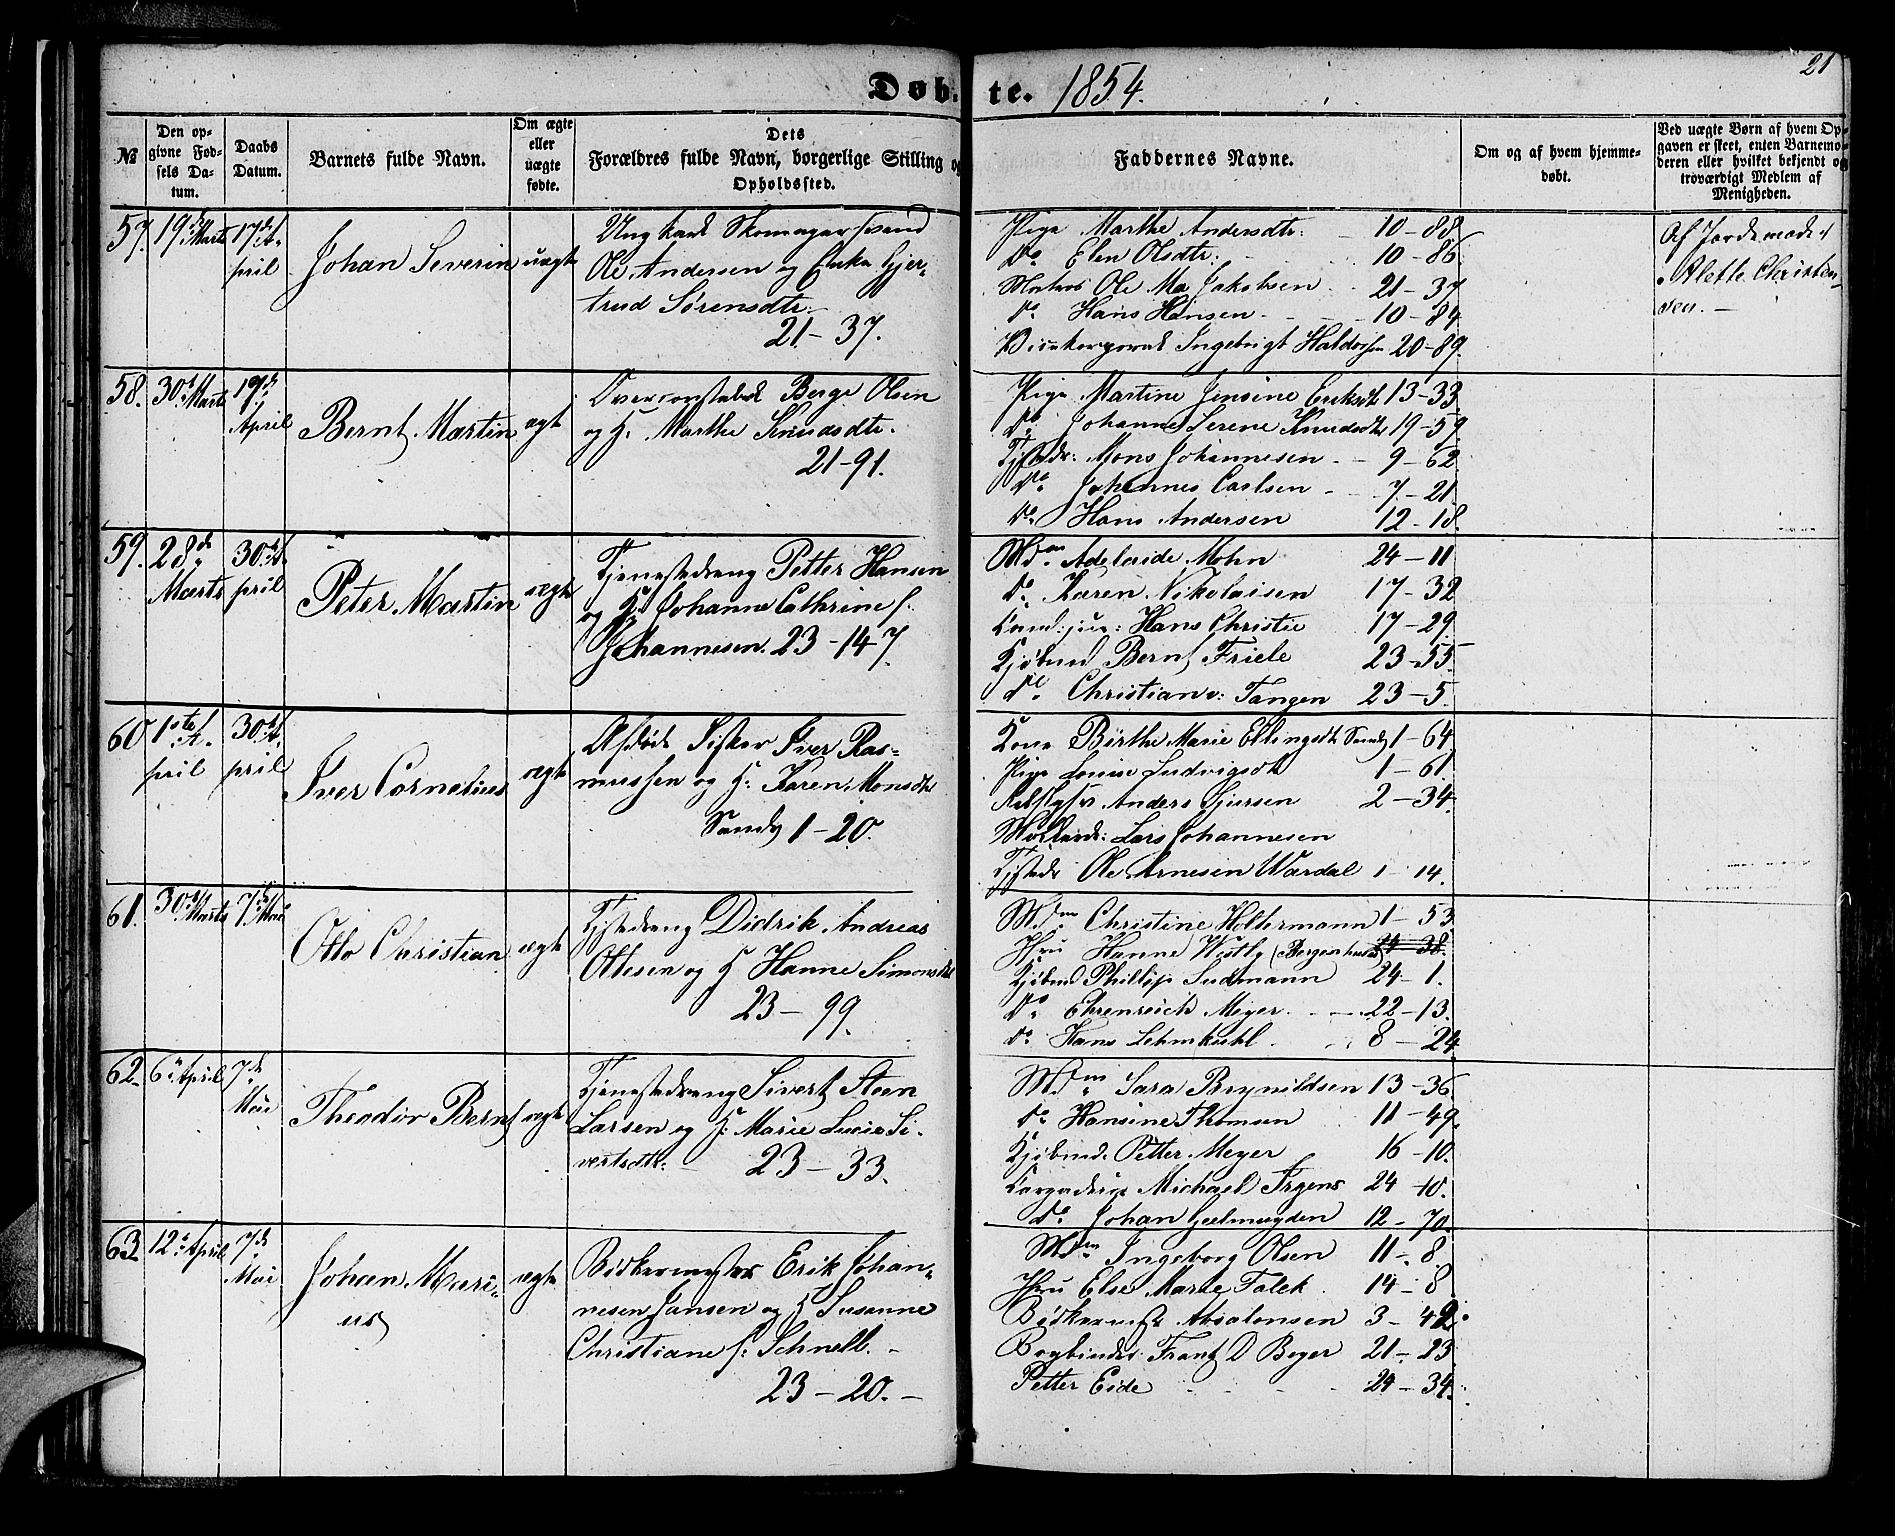 Døb-te. 1854.
21
№
Den opgivne Fødsels Datum.
Daabs Datum.
Barnets fulde Navn.
Om ægte eller uægte fødte.
Dets Forældres fulde Navn, borgerlige Stilling og Opholdssted.
Faddernes Navne.
Om og af hvem hjemmedøbt.
Ved uægte Børn af hvem Opgaven er skeet, enten Barnemoderen eller hvilket bekjendt og troværdigt Medlem af Menigheden.
57. 19de Marts 17de April
Johan Severin uægte
Ungkarl Skomagersvend
Ole Andersen og Gjertrud Sørensdtr.
21-37.
Pige Marthe Andersdtr: 10-88
Do Elen Olsdtr: 10-86
Matros Ole Ma Jakobsen 21-37
Do Hans Hansen 10-84
Ingebrigt Haldorsen 20-89.
Af Jordemoder
Alette Christensen.
58. 30te Marts 17de April
Bernt Martin ægte
Overconstabel Berge Olsen
og H. Marthe Knudsdtr.
21-91.
Pige Martine Jensine Eriksdtr 13-33
Do Johanne Serene Knudsdtr 19-59
Tjstedr: Mons Johannesen 9-62
Do Johannes Carlsen 7-21
Do Hans Andersen 12-18.
59. 28de Marts 30te April
Peter Martin ægte
Tjenestedreng Petter Hansen
og H. Johanne Cathrine f.
Johannesen. 23-147.
Mdm Adelaide Mohn 24-11
Do Karen Nikolaisen 17-32
Cand: jur: Hans Christie 17-29
Kjøbmd Bernt Friele 23-55
Do Christian v: Tangen 23-5.
60 1ste April 30te April
Iver Cornelius ægte
Afdøde Fisker Iver Rasmussen og H: Karen Monsdtr
Sandv 1-20.
Kone Birthe Marie Ellingsdtr Sandv 1-64
Pige Louise Ludvigsdtr 1-61
Anders Sjursen 2-34
Lars Johannesen
Tjstedr Ole Arnesen Wardal 1-14.
61. 30te Marts 7de Mai
Otto Christian ægte
Tjstedreng Didrik Andreas
Ottesen og H Hanne Simonsdtr
23-99.
Mdm Christine Holtermann 1-53
Fru Hanne Westby (Bergenhuus) 24-38.
Kjøbmd Phillip Sudmann 24-1.
Do Ehrenreich Meyer 22-13.
do Hans Lehmkuhl 8-24
62. 6te April 7de Mai
Theodor Bernt ægte
Tjenestedreng Sivert Steen
Larsen og H. Marie Lucie Sivertsdtr:
23-33.
Mdm Sara Brynildsen 13-36
do Hansine Thomsen 11-49.
Kjøbmd. Petter Meyer 16-10.
Michael Irgens 24-10.
do Johan Geelmuyden 12-70
63. 12te April 7de Mai
Johan Marius ægte
Bødkermester Erik Johannesen Jansen og H Susanne
Christiane f: Schnell.
23-20.
Mdm Ingeborg Olsen 11-8
Fru Else Marie Falck 14-8
Bødkermester Absalonsen 3-42.
Bogbinder Frantz D Beyer 21-23
Petter Eide 24-34.